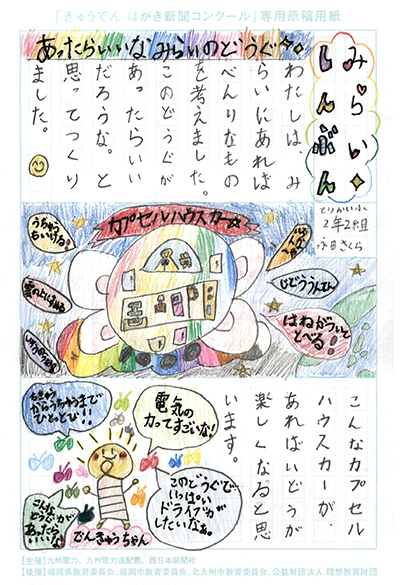 「きゅうでん はがき新聞コンクール」専用原稿用紙
みらい
しんぶん
とりかい小
2年2組
永田さくら
あったらいいな みらいのどうぐ
わたしは、み
らいにあれば
べんりなもの
を考えました。
このどうぐが
あったらいい
だろうな。と
思ってつくり
ました。
カプセルハウスカー
うちゅうも
いける。
じどううんてん
はねがついて
とべる。
こんなカプセル
ハウスカーが、
あればいどうが
楽しくなると思
います。
電気の
力ってすごいな!
ちきゅう
からうちゅうまで
ひとっとび!!
このどうぐで
いっぱい
ドライブが
したいなぁ。
こんな
どうぐが
あったら
いいな
でんきゅうちゃん
【主催】九州電力、九州電力送配電、西日本新聞社
【後援】福岡県教育委員会、福岡市教育委員会、北九州市教育委員会、公益財団法人 理想教育財団